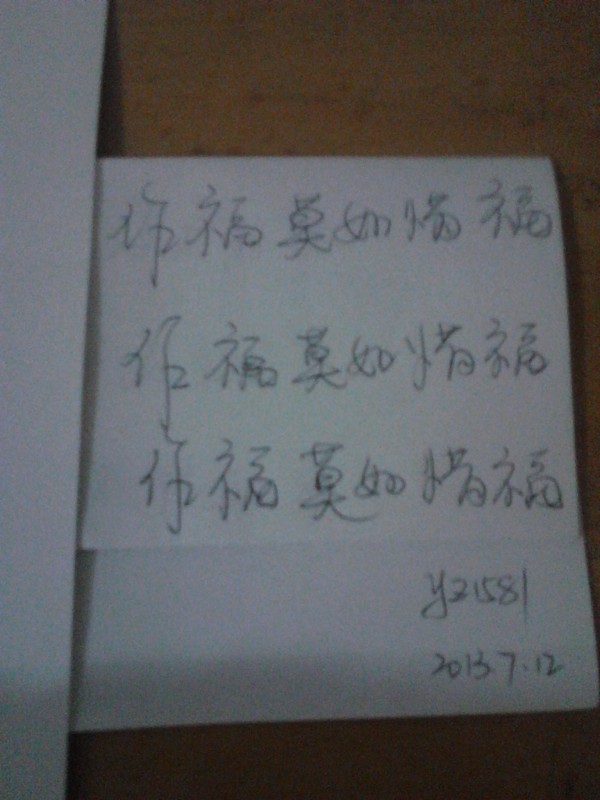 作福莫如惜福
作福莫如惜福
作福莫如惜福
yz1581
2013.7.12